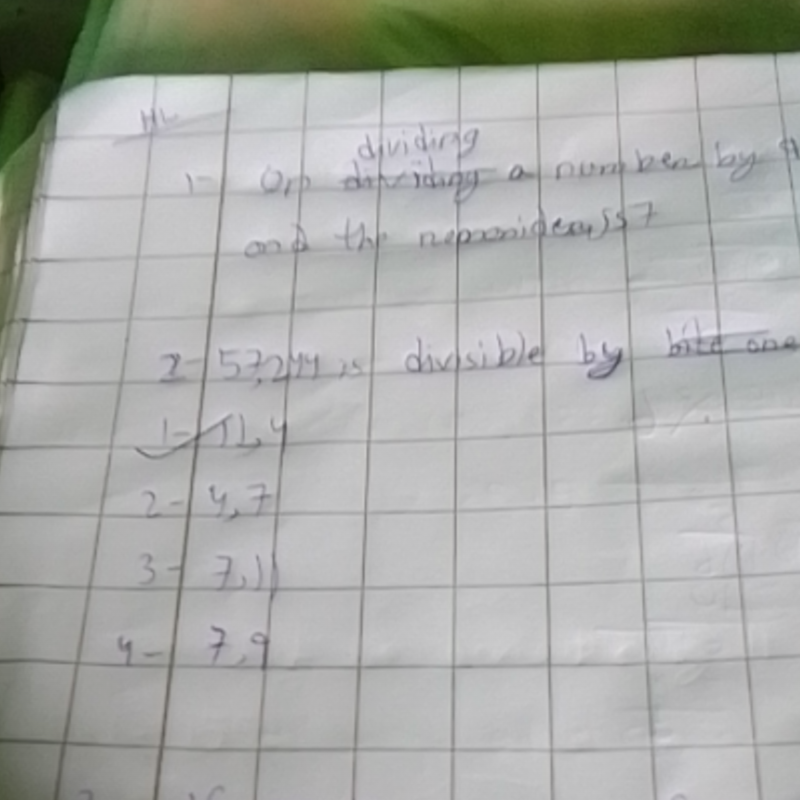 HL
dividing
1- On dividing a number by
and the remainder is 7
2- 57,244 is divisible by bite one
1- 11, 4
2- 4, 7
3- 7, 11
4- 7, 9